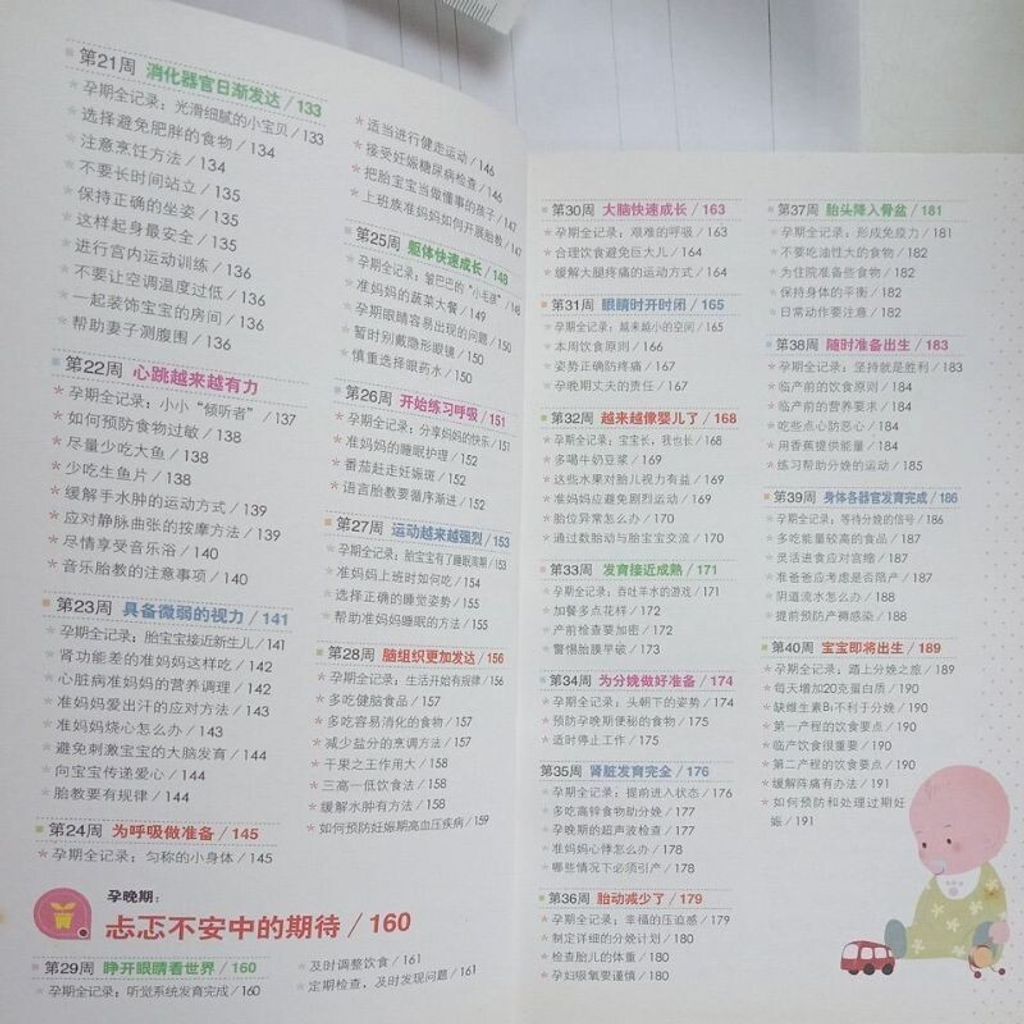 第21周 消化器官日渐发达 / 133
* 孕期全记录：光滑细腻的小宝贝 / 133
* 选择避免肥胖的食物 / 134
* 注意烹饪方法 / 134
* 不要长时间站立 / 135
* 保持正确的坐姿 / 135
* 这样起身最安全 / 135
* 进行宫内运动训练 / 136
* 不要让空调温度过低 / 136
* 一起装饰宝宝的房间 / 136
* 帮助妻子测腹围 / 136
第22周 心跳越来越有力
* 孕期全记录：小小“倾听者” / 137
* 如何预防食物过敏 / 138
* 尽量少吃大鱼 / 138
* 少吃生鱼片 / 138
* 缓解手水肿的运动方式 / 139
* 应对静脉曲张的按摩方法 / 139
* 尽情享受音乐浴 / 140
* 音乐胎教的注意事项 / 140
第23周 具备微弱的视力 / 141
* 孕期全记录：胎宝宝接近新生儿 / 141
* 肾功能差的准妈妈这样吃 / 142
* 心脏病准妈妈的营养调理 / 142
* 准妈妈爱出汗的应对方法 / 143
* 准妈妈烧心怎么办 / 143
* 避免刺激宝宝的大脑发育 / 144
* 向宝宝传递爱心 / 144
* 胎教要有规律 / 144
第24周 为呼吸做准备 / 145
* 孕期全记录：匀称的小身体 / 145
* 适当进行健走运动 / 146
* 接受妊娠糖尿病检查 / 146
* 把胎宝宝当做懂事的孩子 / 147
* 上班族准妈妈如何开展胎教 / 147
第25周 躯体快速成长 / 148
* 孕期全记录：皱巴巴的“小毛孩” / 148
* 准妈妈的蔬菜大餐 / 149
* 孕期眼睛容易出现的问题 / 150
* 暂时别戴隐形眼镜 / 150
* 慎重选择眼药水 / 150
第26周 开始练习呼吸 / 151
* 孕期全记录：分享妈妈的快乐 / 151
* 准妈妈的睡眠护理 / 152
* 番茄赶走妊娠斑 / 152
* 语言胎教要循序渐进 / 152
第27周 运动越来越强烈 / 153
* 孕期全记录：胎宝宝有了睡眠周期 / 153
* 准妈妈上班时如何吃 / 154
* 选择正确的睡觉姿势 / 155
* 帮助准妈妈睡眠的方法 / 155
第28周 脑组织更加发达 / 156
* 孕期全记录：生活开始有规律 / 156
* 多吃健脑食品 / 157
* 多吃容易消化的食物 / 157
* 减少盐分的烹调方法 / 157
* 干果之王作用大 / 158
* 三高一低饮食法 / 158
* 缓解水肿有方法 / 158
* 如何预防妊娠期高血压疾病 / 159
孕晚期：
忐忑不安中的期待 / 160
第29周 睁开眼睛看世界 / 160
* 孕期全记录：听觉系统发育完成 / 160
* 及时调整饮食 / 161
* 定期检查，及时发现问题 / 161
第30周 大脑快速成长 / 163
* 孕期全记录：艰难的呼吸 / 163
* 合理饮食避免巨大儿 / 164
* 缓解大腿疼痛的运动方式 / 164
第31周 眼睛时开时闭 / 165
* 孕期全记录：越来越小的空间 / 165
* 本周饮食原则 / 166
* 姿势正确防疼痛 / 167
* 孕晚期丈夫的责任 / 167
第32周 越来越像婴儿了 / 168
* 孕期全记录：宝宝长，我也长 / 168
* 多喝牛奶豆浆 / 169
* 这些水果对胎儿视力有益 / 169
* 准妈妈应避免剧烈运动 / 169
* 胎位异常怎么办 / 170
* 通过数胎动与胎宝宝交流 / 170
第33周 发育接近成熟 / 171
* 孕期全记录：吞吐羊水的游戏 / 171
* 加餐多点花样 / 172
* 产前检查要加密 / 172
* 警惕胎膜早破 / 173
第34周 为分娩做好准备 / 174
* 孕期全记录：头朝下的姿势 / 174
* 预防孕晚期便秘的食物 / 175
* 适时停止工作 / 175
第35周 肾脏发育完全 / 176
* 孕期全记录：提前进入状态 / 176
* 多吃高锌食物助分娩 / 177
* 孕晚期的超声波检查 / 177
* 准妈妈心悸怎么办 / 178
* 哪些情况下必须引产 / 178
第36周 胎动减少了 / 179
* 孕期全记录：幸福的压迫感 / 179
* 制定详细的分娩计划 / 180
* 检查胎儿的体重 / 180
* 孕妇吸氧要谨慎 / 180
第37周 胎头降入骨盆 / 181
* 孕期全记录：形成免疫力 / 181
* 不要吃油性大的食物 / 182
* 为住院准备些食物 / 182
* 保持身体的平衡 / 182
* 日常动作要注意 / 182
第38周 随时准备出生 / 183
* 孕期全记录：坚持就是胜利 / 183
* 临产前的饮食原则 / 184
* 临产前的营养要求 / 184
* 吃些点心防恶心 / 184
* 用香蕉提供能量 / 184
* 练习帮助分娩的运动 / 185
第39周 身体各器官发育完成 / 186
* 孕期全记录：等待分娩的信号 / 186
* 多吃能量较高的食品 / 187
* 灵活进食应对宫缩 / 187
* 准爸爸应考虑是否陪产 / 187
* 阴道流水怎么办 / 188
* 提前预防产褥感染 / 188
第40周 宝宝即将出生 / 189
* 孕期全记录：踏上分娩之旅 / 189
* 每天增加20克蛋白质 / 190
* 缺维生素B₁不利于分娩 / 190
* 第一产程的饮食要点 / 190
* 临产饮食很重要 / 190
* 第二产程的饮食要点 / 190
* 缓解阵痛有办法 / 191
* 如何预防和处理过期妊
娠 / 191